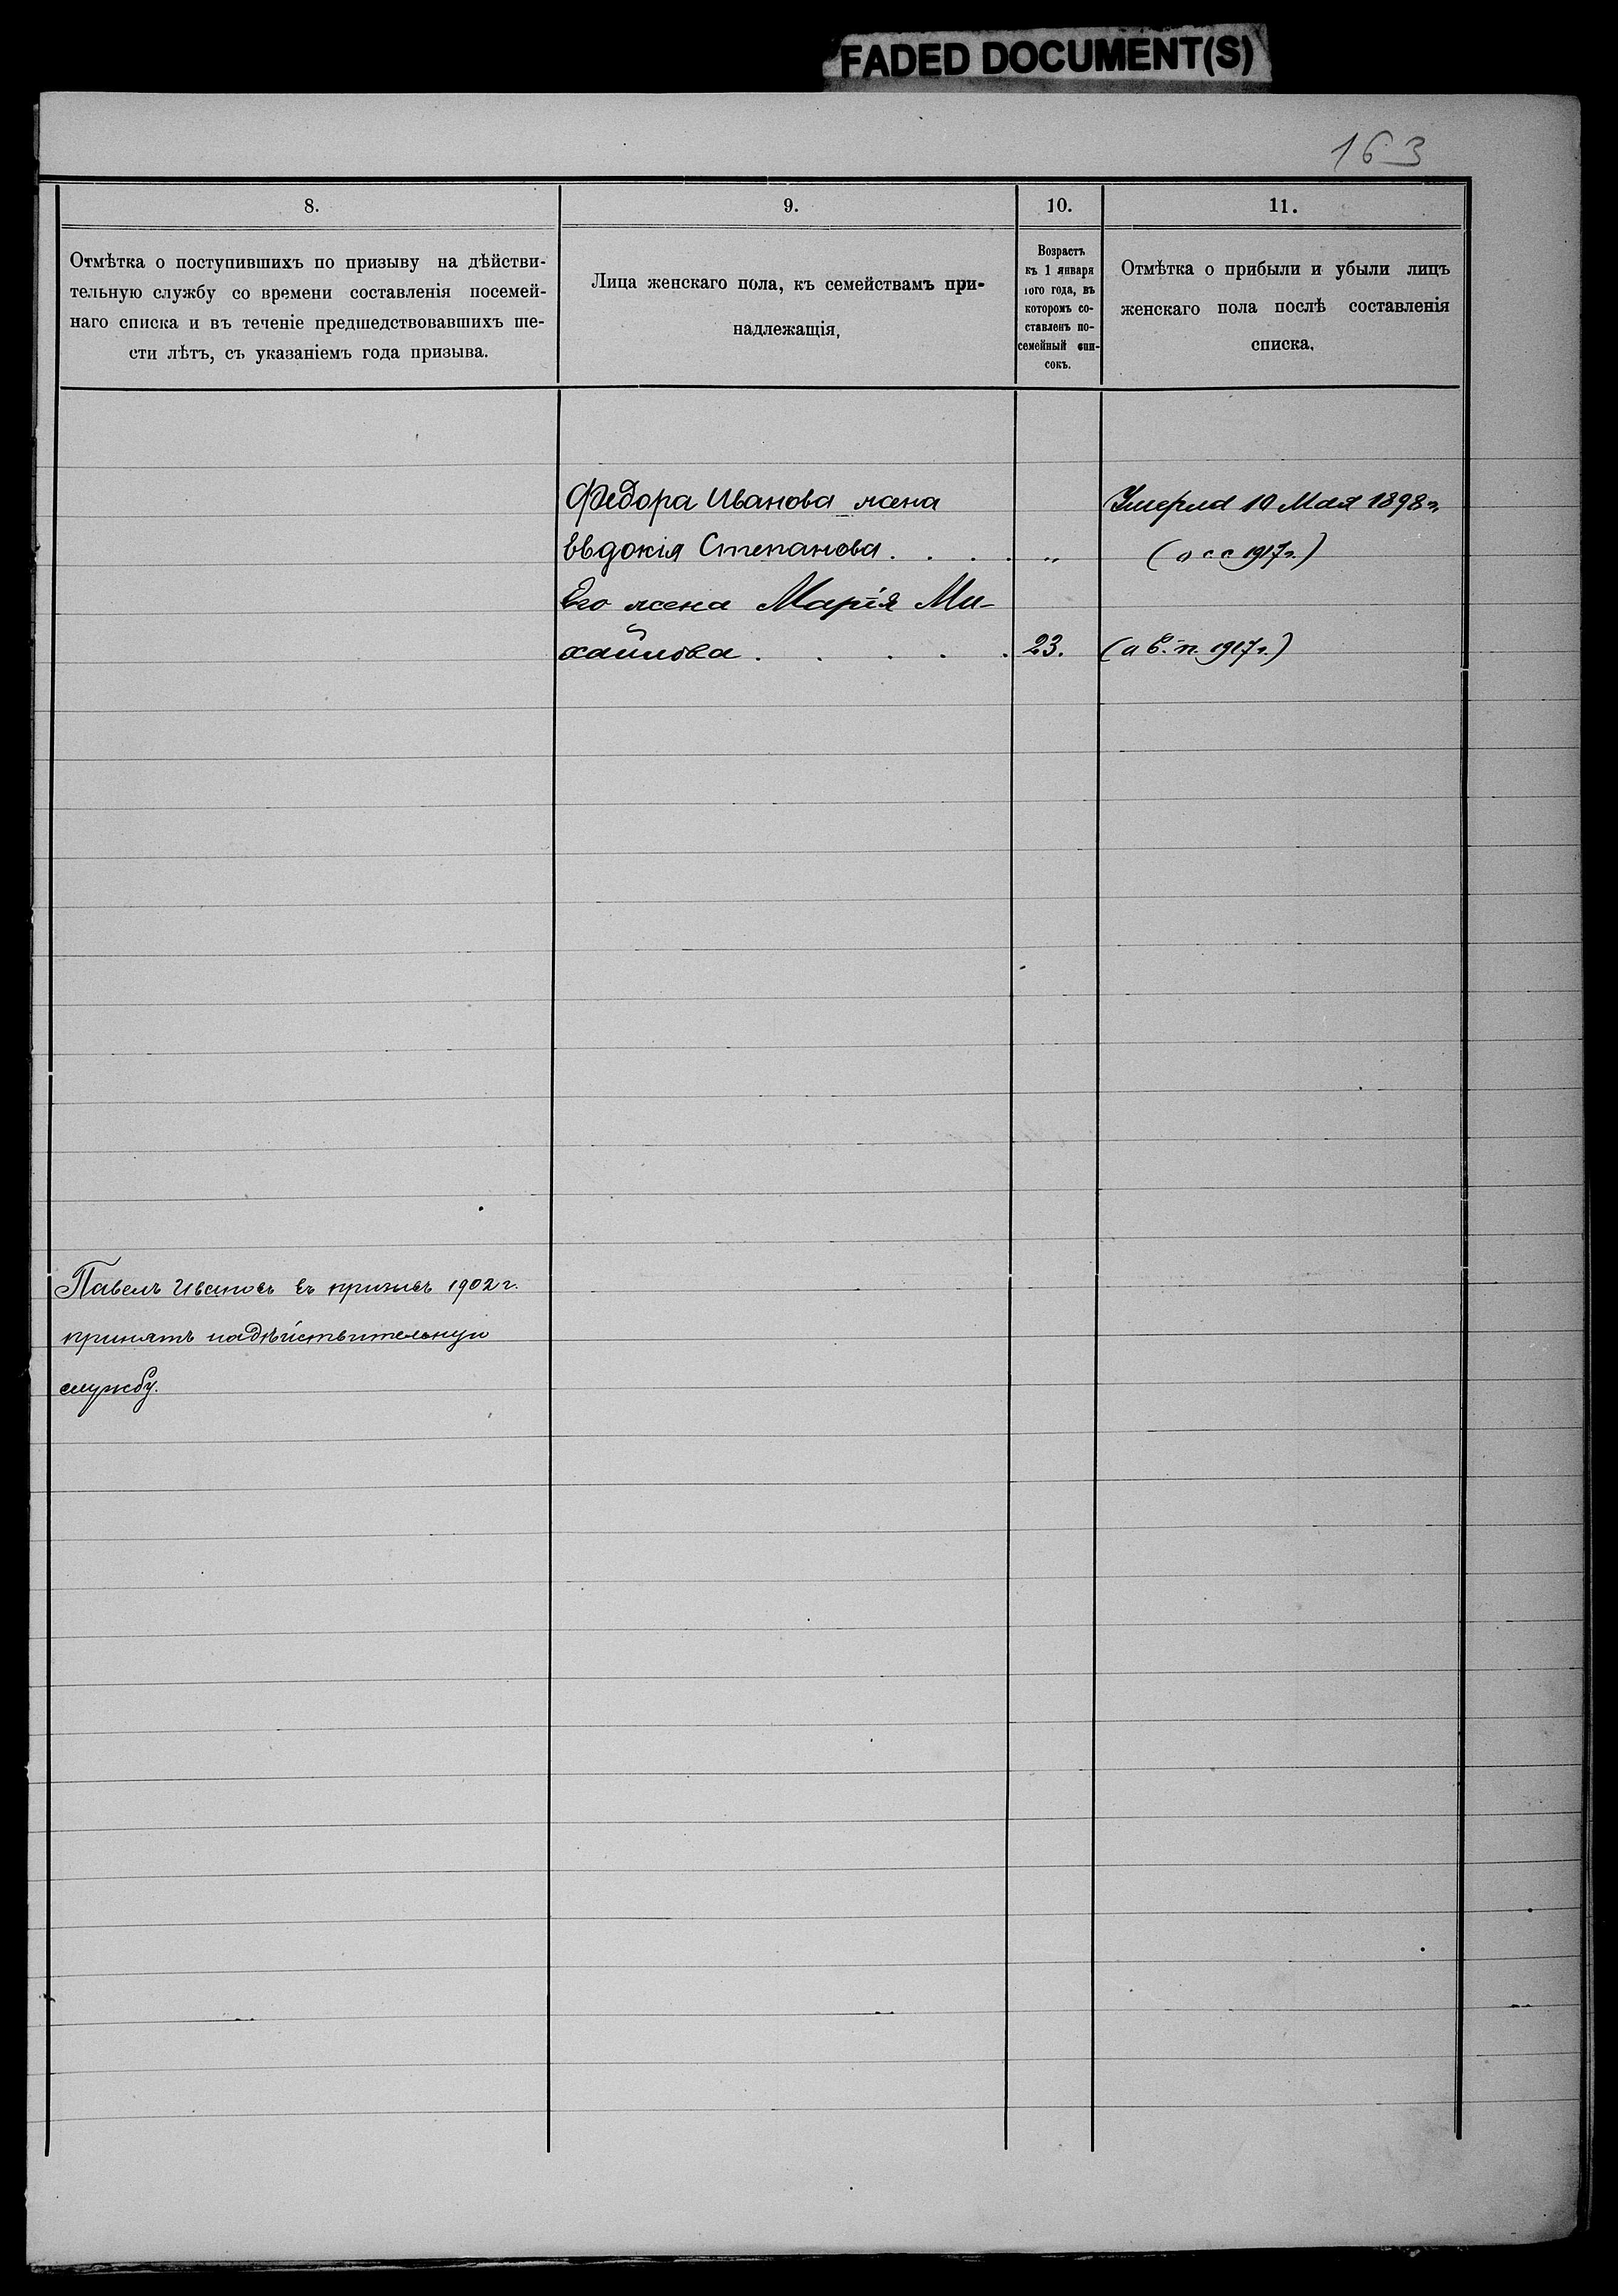 FADED DOCUMENT(S)
163
8.
Отмѣтка о поступившихъ по призыву на дѣйстви-
тельную службу со времени составленія посемей-
наго списка и въ теченіе предшедствовавшихъ ше-
сти лѣтъ, съ указаніемъ года призыва.
9.
Лица женскаго пола, къ семействамъ при-
надлежащія,
10.
Возрастъ
къ 1 января
того года, въ
которомъ со-
ставленъ по-
семейный спи-
сокъ.
11.
Отмѣтка о прибыли и убыли лицъ
женскаго пола послѣ составленія
списка.
Федора Иванова жена
Умерла 10 Мая 1898 г.
Евдокія Степанова . . . . „
1917 г.)
Его жена Марія Ми-
хайлова . . . . . 23.
1917 г.)
Павелъ Ивановъ въ призывъ 1902 г.
принятъ на дѣйствительную
службу.